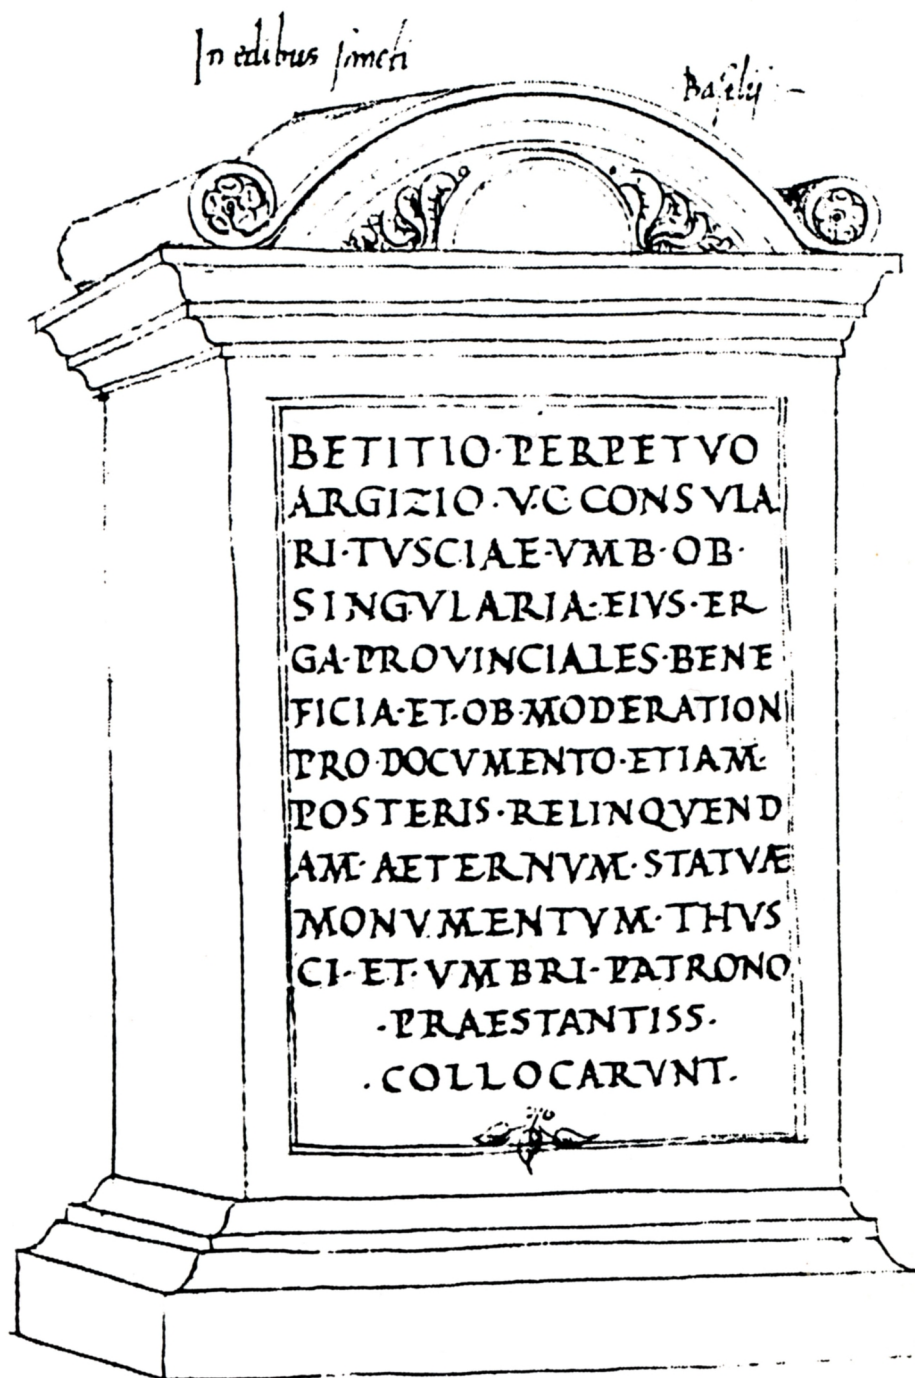 In edibus sancti Basilij
BETITIO·PERPETVO
ARGIZIO·V·C·CONSVLA
RI·TVSCIAE·VMB·OB·
SINGVLARIA·EIVS·ER
GA·PROVINCIALES·BENE
FICIA·ET·OB·MODERATION
PRO·DOCVMENTO·ETIAM·
POSTERIS·RELINQVEND
AM·AETERNVM·STATVÆ
MONVMENTVM·THVS
CI·ET·VMBRI·PATRONO
·PRAESTANTISS·
·COLLOCARVNT·